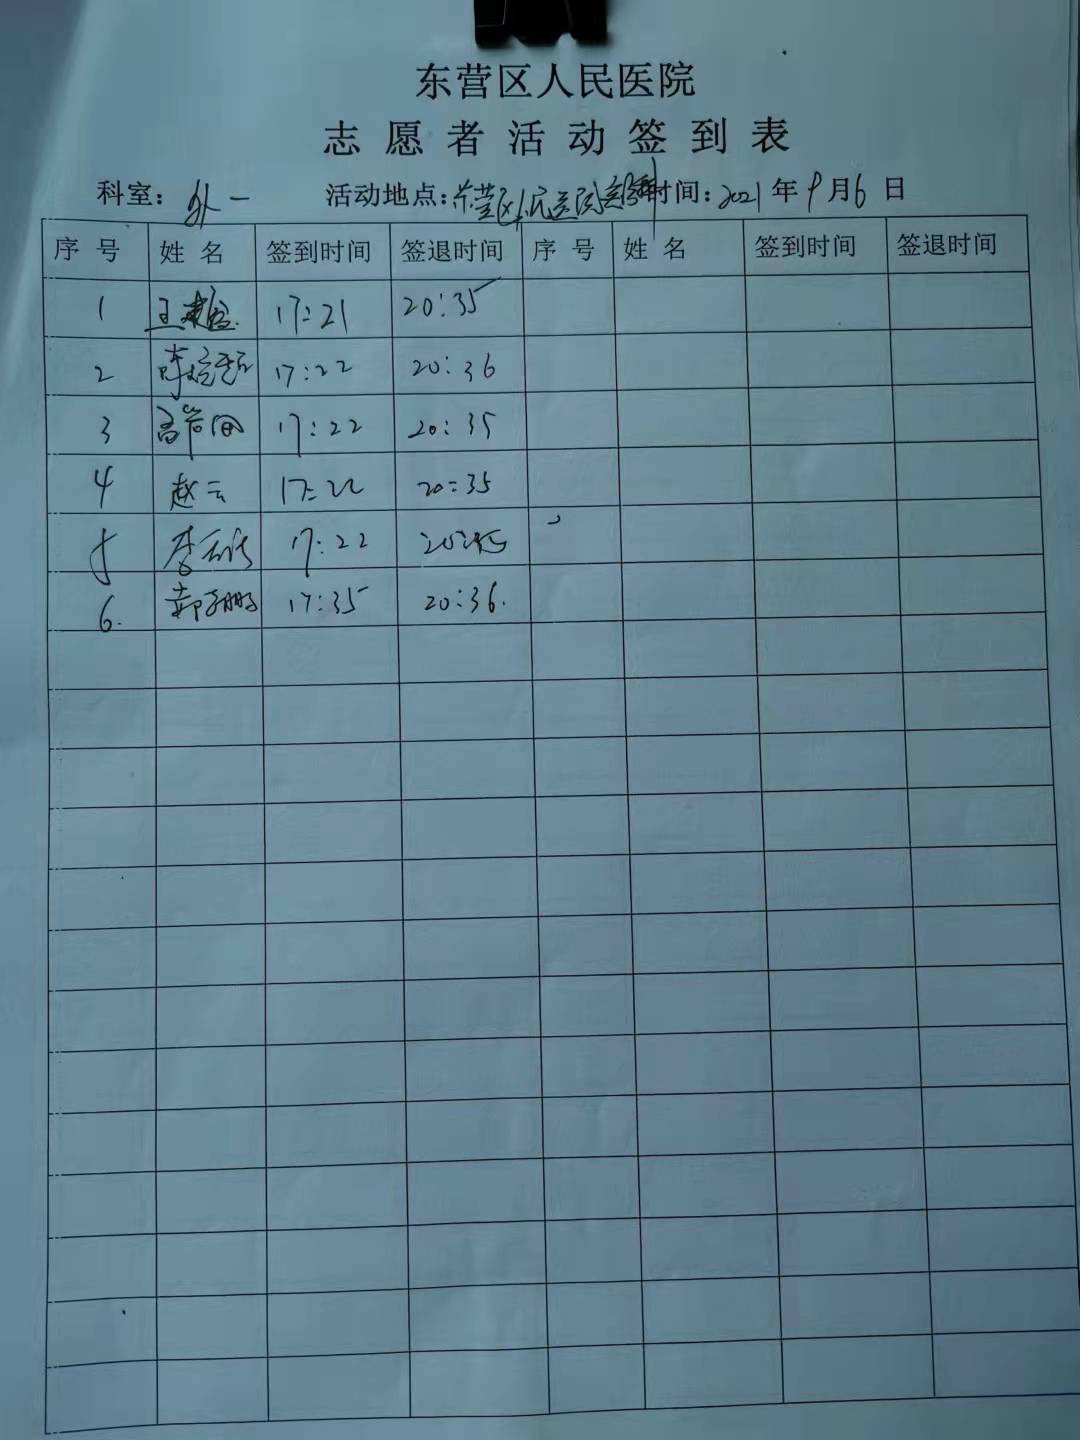 东营区人民医院
志愿者活动签到表
科室：外一 活动地点：东营区人民医院 时间：2021年9月6日
序号 姓名 签到时间 签退时间 序号 姓名 签到时间 签退时间
1 17:21 20:35
2 17:22 20:36
3 17:22 20:35
4 赵云 17:22 20:35
5 17:22
6. 17:35 20:36.